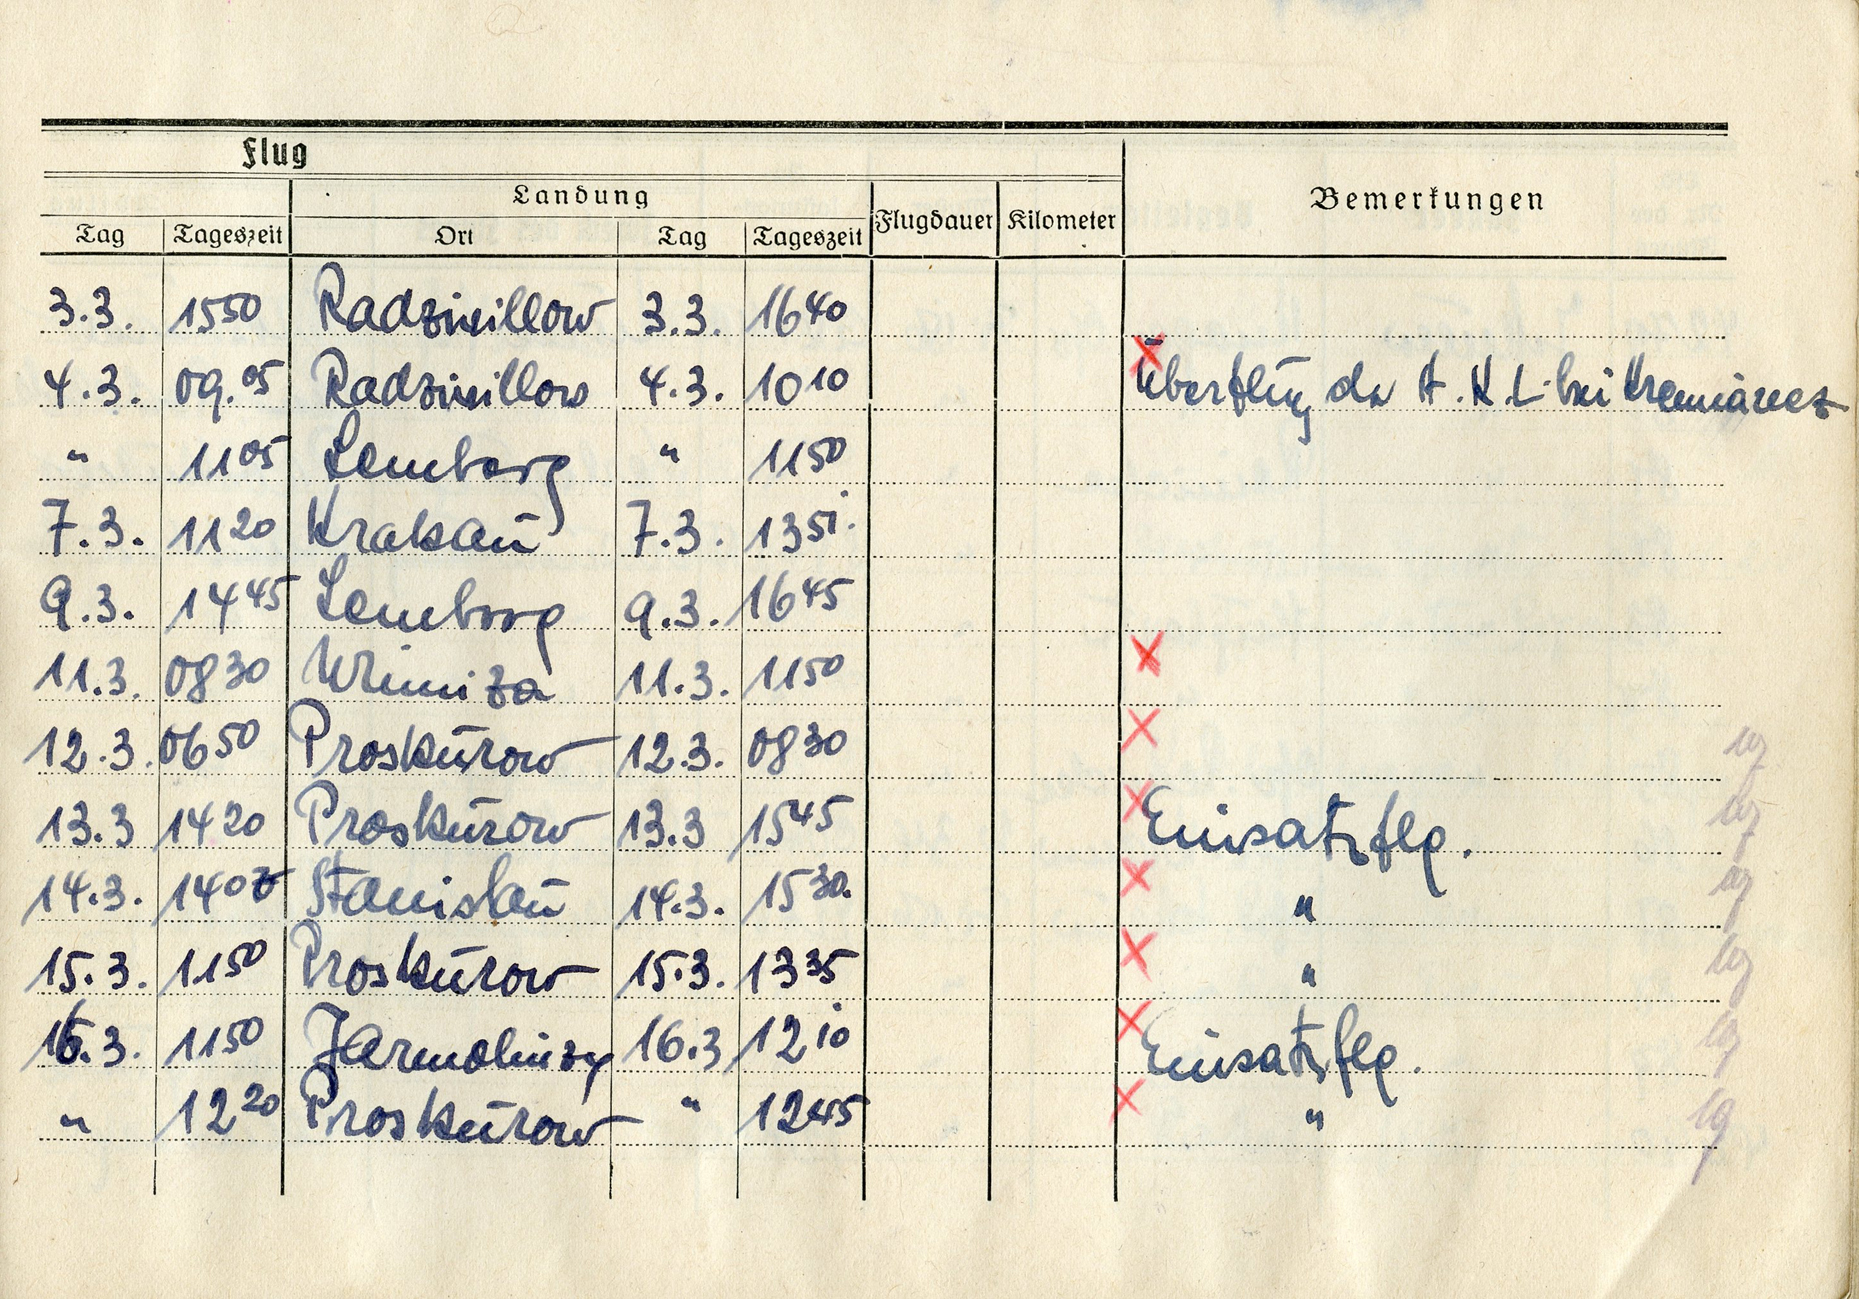 Flug
Landung
Bemerkungen
Tag Tageszeit Ort Tag Tageszeit Flugdauer Kilometer
3.3. 1550 Radziwillow 3.3. 1640
4.3. 09.05 Radziwillow 4.3. 1010 Überflug der H.K.L. bei
" 1105 Lemberg " 1150
7.3. 1120 Krakau 7.3. 1351.
9.3. 1445 Lemberg 9.3. 1645
11.3. 0830 Winniza 11.3. 1150
12.3. 0650 Proskurow 12.3. 0830
13.3 1420 Proskurow 13.3 1545 Einsatzflg.
14.3. Stanislau 14.3. 1530. "
15.3. 1150 Proskurow 15.3. 1335 "
16.3. 1150 Jarmolinzy 16.3 1210 Einsatzflg.
" 1220 Proskurow " 1245 "